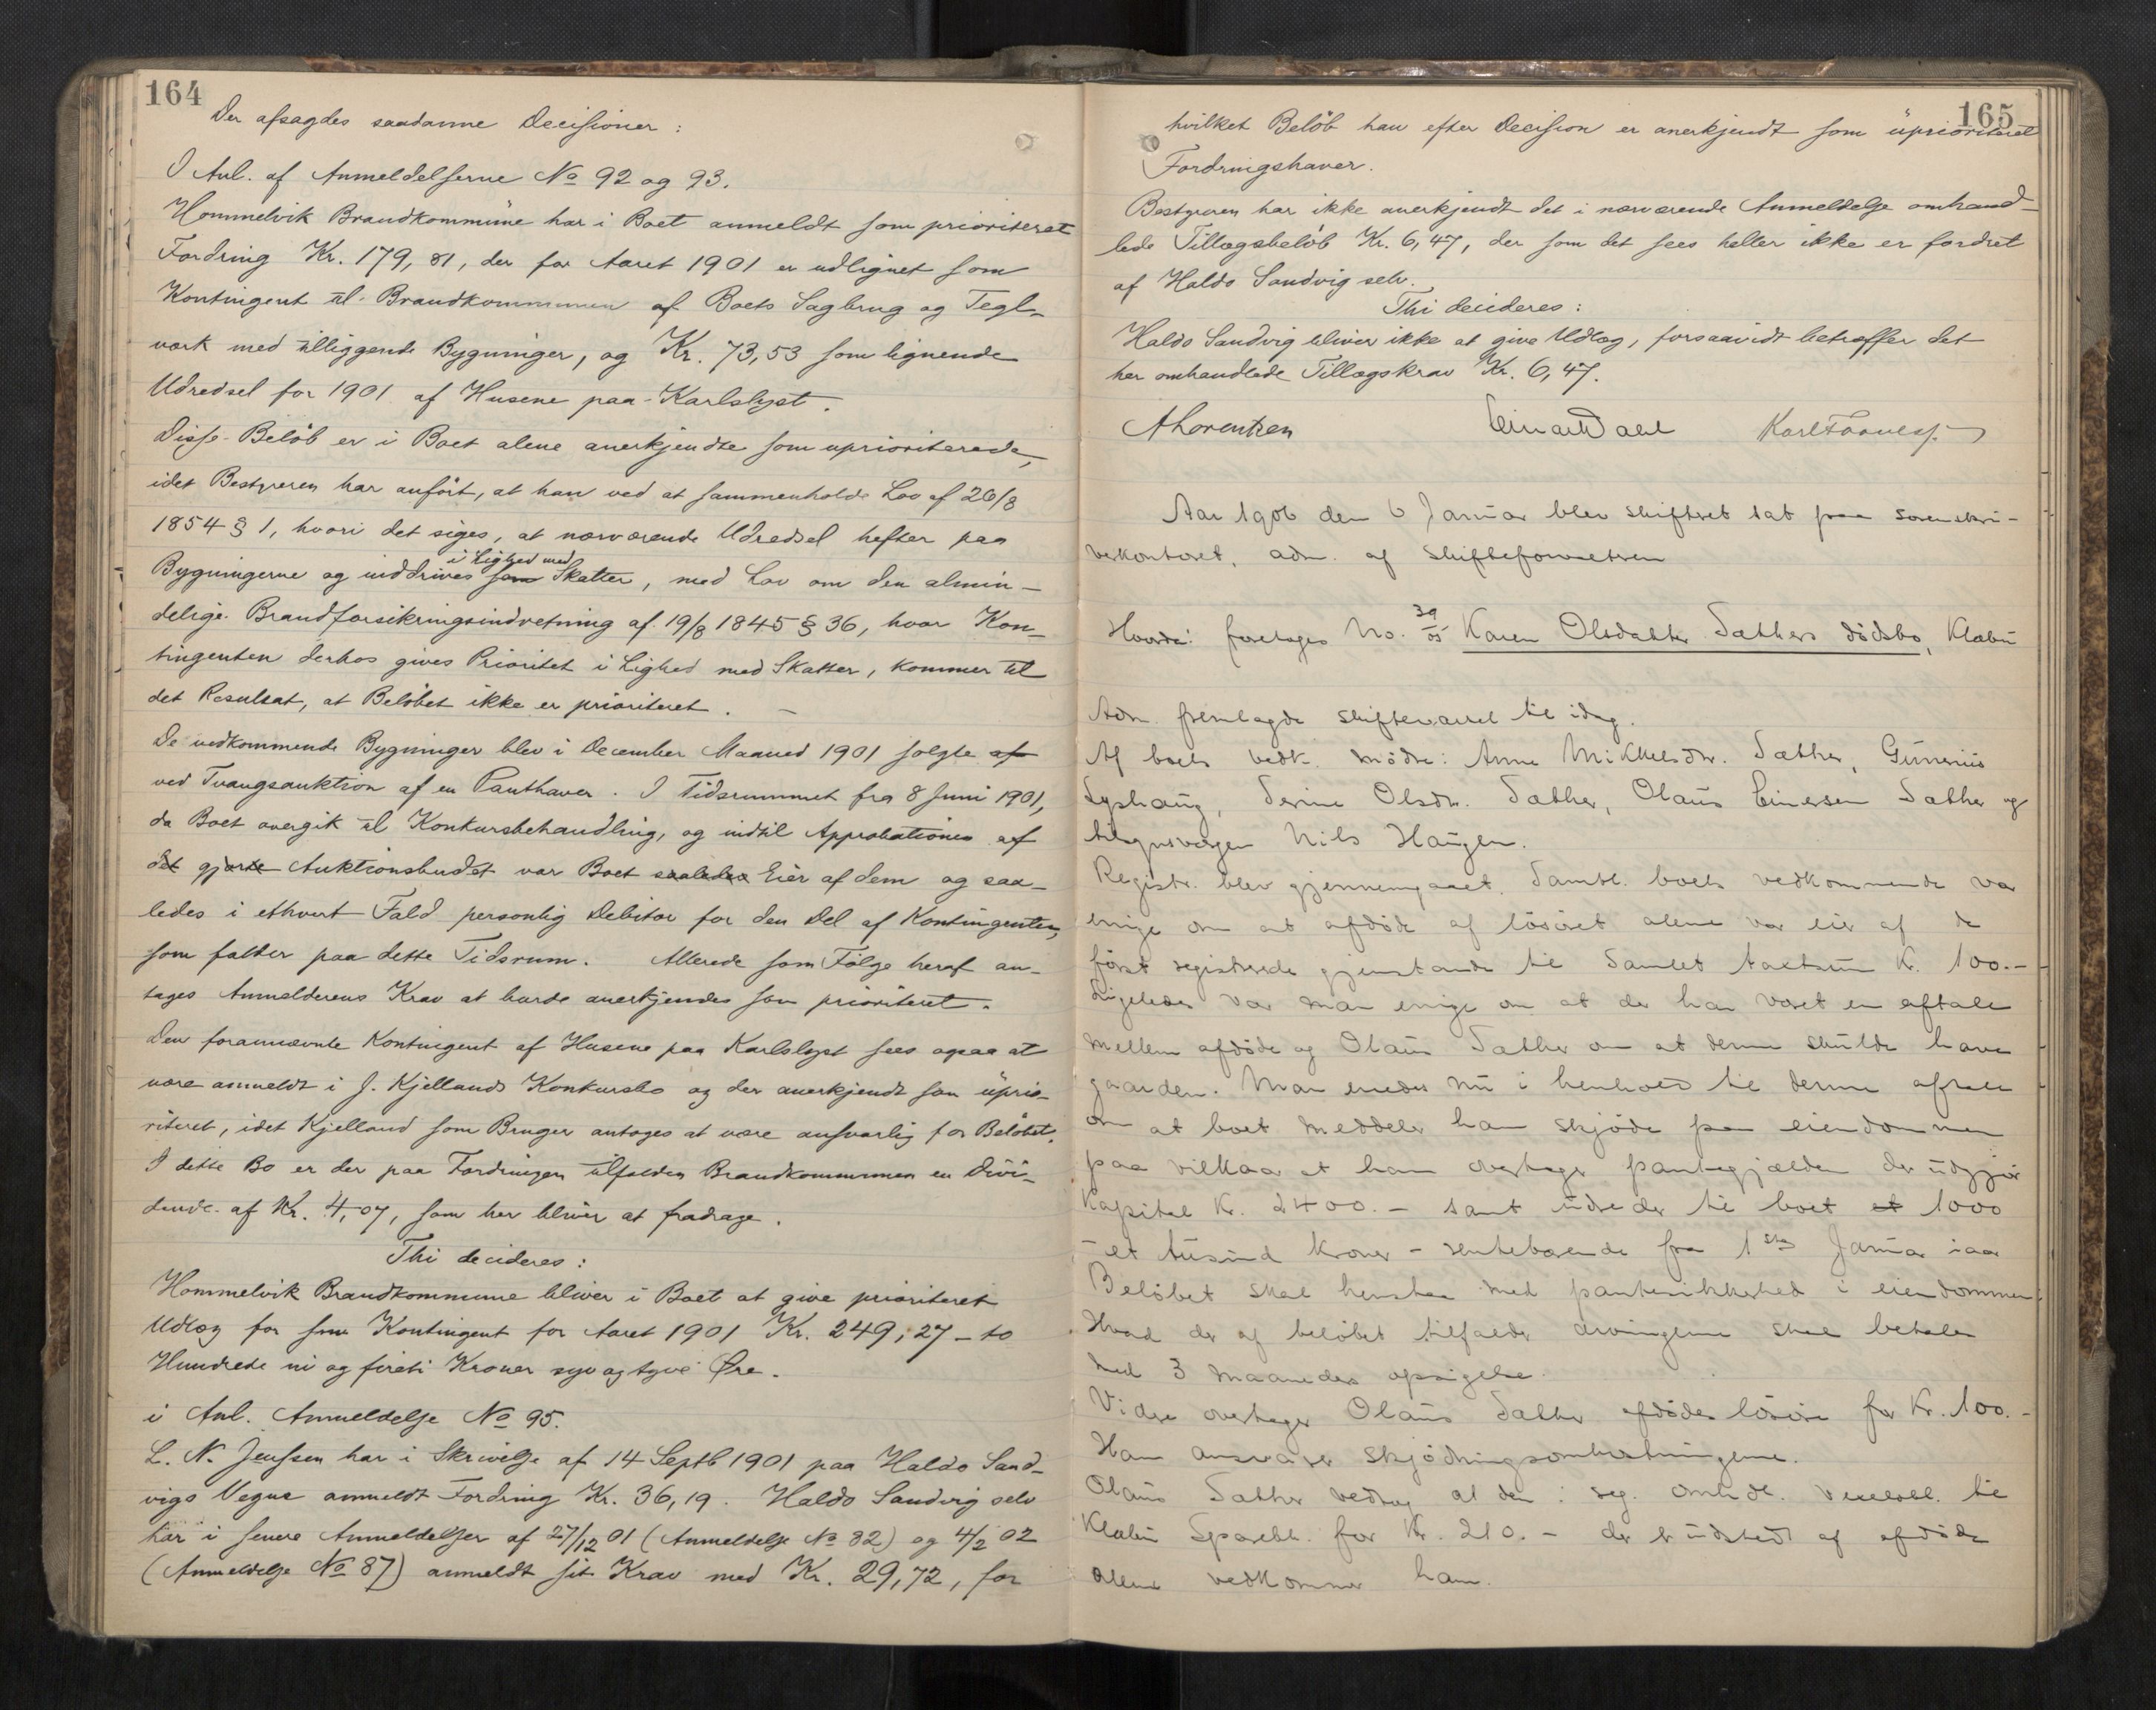 164
Der afsagdes saadanne Decisioner:
I Anl. af Anmeldelserne No 92 og 93.
Hommelvik Brandkommune har i Boet anmeldt som prioriteret
Fordring Kr. 179,81, der for Aaret 1901 er udlignet som
Kontingent til Brandkommunen af Boets Sagbrug og Tegl-
værk med tilliggende Bygninger, og Kr. 73,53 som lignende
Udredsel for 1901 af Husene paa Karlslyst.
Disse Beløb er i Boet alene anerkjendte som uprioriterede,
idet Bestyreren har anført, at han ved at sammenholde Lov af 26/8
1854 § 1, hvori det siges, at nærværende Udredsel hefter paa
Bygningerne og inddrives som i Lighed med Skatter, med Lov om den almin-
delige Brandforsikringsindretning af 19/8 1845 § 36, hvor Kon-
tingenten derhos gives Prioritet i Lighed med Skatter, kommer til
det Resultat, at Beløbet ikke er prioriteret. -
De vedkommende Bygninger blev i December Maaned 1901 solgte af
ved Tvangsauktion af en Panthaver. I Tidsrummet fra 8 Juni 1901,
da Boet overgik til Konkursbehandling, og indtil Approbationen af
det gjorte Auktionsbudet var Boet saaledes Eier af dem og saa-
ledes i ethvert Fald personlig Debitor for den Del af Kontingenten,
som falder paa dette Tidsrum. Allerede som Følge heraf an-
tages Anmelderens Krav at burde anerkjendes som prioriteret.
Den forannævnte Kontingent af Husene paa Karlslyst sees ogsaa at
være anmeldt i J. Kjellands Konkursbo og der anerkjendt som uprio-
riteret, idet Kjelland som Bruger antages at være ansvarlig for Beløbet.
I dette Bo er der paa Fordringen tilfalden Brandkommunen en Divi-
dende af Kr. 4,07, som her bliver at fradrage.
Thi decideres:
Hommelvik Brandkommune bliver i Boet at give prioriteret
Udlæg for sin Kontingent for Aaret 1901 Kr. 249,27 - to
Hundrede ni og firti Kroner syv og tyve Øre.
i Anl. Anmeldelse No 95.
L. N. Jenssen har i Skrivelse af 14 Septb 1901 paa Haldo Sand-
vigs Vegne anmeldt Fordring Kr. 36,19. Haldo Sandvig selv
har i senere Anmeldelser af 27/12 01 (Anmeldelse No 82) og 4/2 02
(Anmeldelse No 87) anmeldt sit Krav med Kr. 29,72, for
165
hvilket Beløb han efter Decision er anerkjendt som uprioriteret
Fordringshaver.
Bestyreren har ikke anerkjendt det i nærværende Anmeldelse omhand-
lede Tillægsbeløb Kr. 6,47, der som det sees heller ikke er fordret
af Haldo Sandvig selv.
Thi decideres:
Haldo Sandvig bliver ikke at give Udlæg, forsaavidt betræffer det
her omhandlede Tillægskrav Kr. 6,47.
A Lorentzen Einar Dahl Karl
Aar 1906 den 6 Januar blev skifteret sat paa sorenskri-
verkontoret, adm. af skifteforvalteren
Hvorda: foretoges No. 39/05 Karen Olsdatter Sæthers dødsbo, Klæbu
Adm. fremlagde skiftevarsel til idag.
Af boets vedk. mødte: Anne Mikkelsdr. Sæther, Gunerius
Lyshaug, Serine Olsdr. Sæther, Olaus Einersen Sæther og
tilsynsværgen Nils Haugen.
Registr. blev gjennemgaaet. Samtl. boets vedkommende var
enige om at afdøde af løsøret alene var eier af de
først registrerede gjenstande til samlet takstsum K. 100.-
Ligeledes var man enige om at der har været en aftale
mellem afdøde og Olaus Sæther om at denne skulde have
gaarden. Man enedes nu i henhold til denne aftale
om at boet meddeler ham skjøde paa eiendommen
paa vilkaar at han overtager pantegjælden der udgjør
Kapital K. 2400.- samt udreder til boet et 1000
- et tusind kroner - rentebærende fra 1ste Januar iaar
Beløbet skal henstaa med pantesikkerhed i eiendommen.
Hvad der af beløbet tilfalder arvingerne skal betales
med 3 maaneders opsigelse.
Videre overtager Olaus Sæther afdødes løsøre for Kr. 100.-
Han ansvarer skjødningsomkostningerne.
Olaus Sæther vedtog at den i reg. omhdl. vexelobl. til
Klæbu Sparebk. for Kr. 210.- der er udstedt af afdøde
alene vedkommer ham.